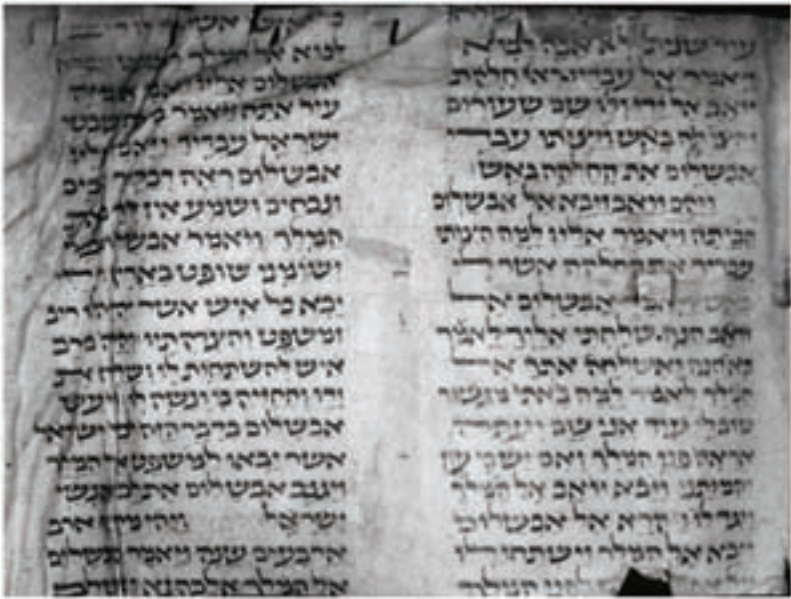 עוד שנית ולא אבה לבוא
ויאמר אל עבדיו ראו חלקת
יואב אל ידי ולו שם שעורים
באש ויציתו עבדי
אבשלום את החלקה באש
ויקם יואב ויבא אל אבשלום
הביתה ויאמר אליו למה הציתו
עבדיך את החלקה אשר לי
אבשלום אל
יואב הנה שלחתי אליך לאמר
בא הנה ואשלחה אתך אל
המלך לאמר למה באתי מגשור
טוב לי עוד אני שם ועתה
אראה פני המלך ואם יש בי עון
והמתני ויבא יואב אל המלך
ויגד לו ויקרא אל אבשלום
ויבא אל המלך וישתחו לו
לפני המלך
לבוא אל המלך
אבשלום אליו
עיר אתה ויאמר שבטי
ישראל עבדיך ויאמר
אבשלום ראה דבריך
ונכחים ושמע אין לך
המלך ויאמר אבשלום
ישימני שופט בארץ
יבא כל איש אשר יהיה ריב
ומשפט והצדקתיו והיה
איש להשתחות לו ושלח את
ידו והחזיק בו ונשק לו ויעש
אבשלום כדבר הזה ישראל
אשר יבאו למשפט אל המלך
ויגנב אבשלום את לב אנשי
ישראל ויהי מקץ
ארבעים שנה ויאמר אבשלום
אל המלך אלכה נא ואשלם